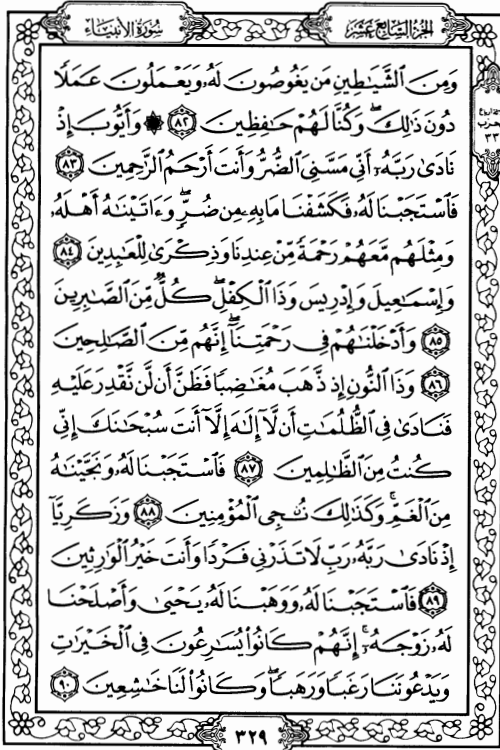 الجزء السابع عشر
سورة الأنبياء
وَمِنَ ٱلشَّيَٰطِينِ مَن يَغُوصُونَ لَهُۥ وَيَعْمَلُونَ عَمَلًا
دُونَ ذَٰلِكَ ۖ وَكُنَّا لَهُمْ حَٰفِظِينَ ٨٢ ۞ وَأَيُّوبَ إِذْ
نَادَىٰ رَبَّهُۥٓ أَنِّى مَسَّنِىَ ٱلضُّرُّ وَأَنتَ أَرْحَمُ ٱلرَّٰحِمِينَ ٨٣
فَٱسْتَجَبْنَا لَهُۥ فَكَشَفْنَا مَا بِهِۦ مِن ضُرٍّ ۖ وَءَاتَيْنَٰهُ أَهْلَهُۥ
وَمِثْلَهُم مَّعَهُمْ رَحْمَةً مِّنْ عِندِنَا وَذِكْرَىٰ لِلْعَٰبِدِينَ ٨٤
وَإِسْمَٰعِيلَ وَإِدْرِيسَ وَذَا ٱلْكِفْلِ ۖ كُلٌّ مِّنَ ٱلصَّٰبِرِينَ
٨٥ وَأَدْخَلْنَٰهُمْ فِى رَحْمَتِنَآ ۖ إِنَّهُم مِّنَ ٱلصَّٰلِحِينَ
٨٦ وَذَا ٱلنُّونِ إِذ ذَّهَبَ مُغَٰضِبًا فَظَنَّ أَن لَّن نَّقْدِرَ عَلَيْهِ
فَنَادَىٰ فِى ٱلظُّلُمَٰتِ أَن لَّآ إِلَٰهَ إِلَّآ أَنتَ سُبْحَٰنَكَ إِنِّى
كُنتُ مِنَ ٱلظَّٰلِمِينَ ٨٧ فَٱسْتَجَبْنَا لَهُۥ وَنَجَّيْنَٰهُ
مِنَ ٱلْغَمِّ ۚ وَكَذَٰلِكَ نُۨجِى ٱلْمُؤْمِنِينَ ٨٨ وَزَكَرِيَّآ
إِذْ نَادَىٰ رَبَّهُۥ رَبِّ لَا تَذَرْنِى فَرْدًا وَأَنتَ خَيْرُ ٱلْوَٰرِثِينَ
٨٩ فَٱسْتَجَبْنَا لَهُۥ وَوَهَبْنَا لَهُۥ يَحْيَىٰ وَأَصْلَحْنَا
لَهُۥ زَوْجَهُۥٓ ۚ إِنَّهُمْ كَانُوا۟ يُسَٰرِعُونَ فِى ٱلْخَيْرَٰتِ
وَيَدْعُونَنَا رَغَبًا وَرَهَبًا ۖ وَكَانُوا۟ لَنَا خَٰشِعِينَ ٩٠
حزب
٣٣
٣٢٩